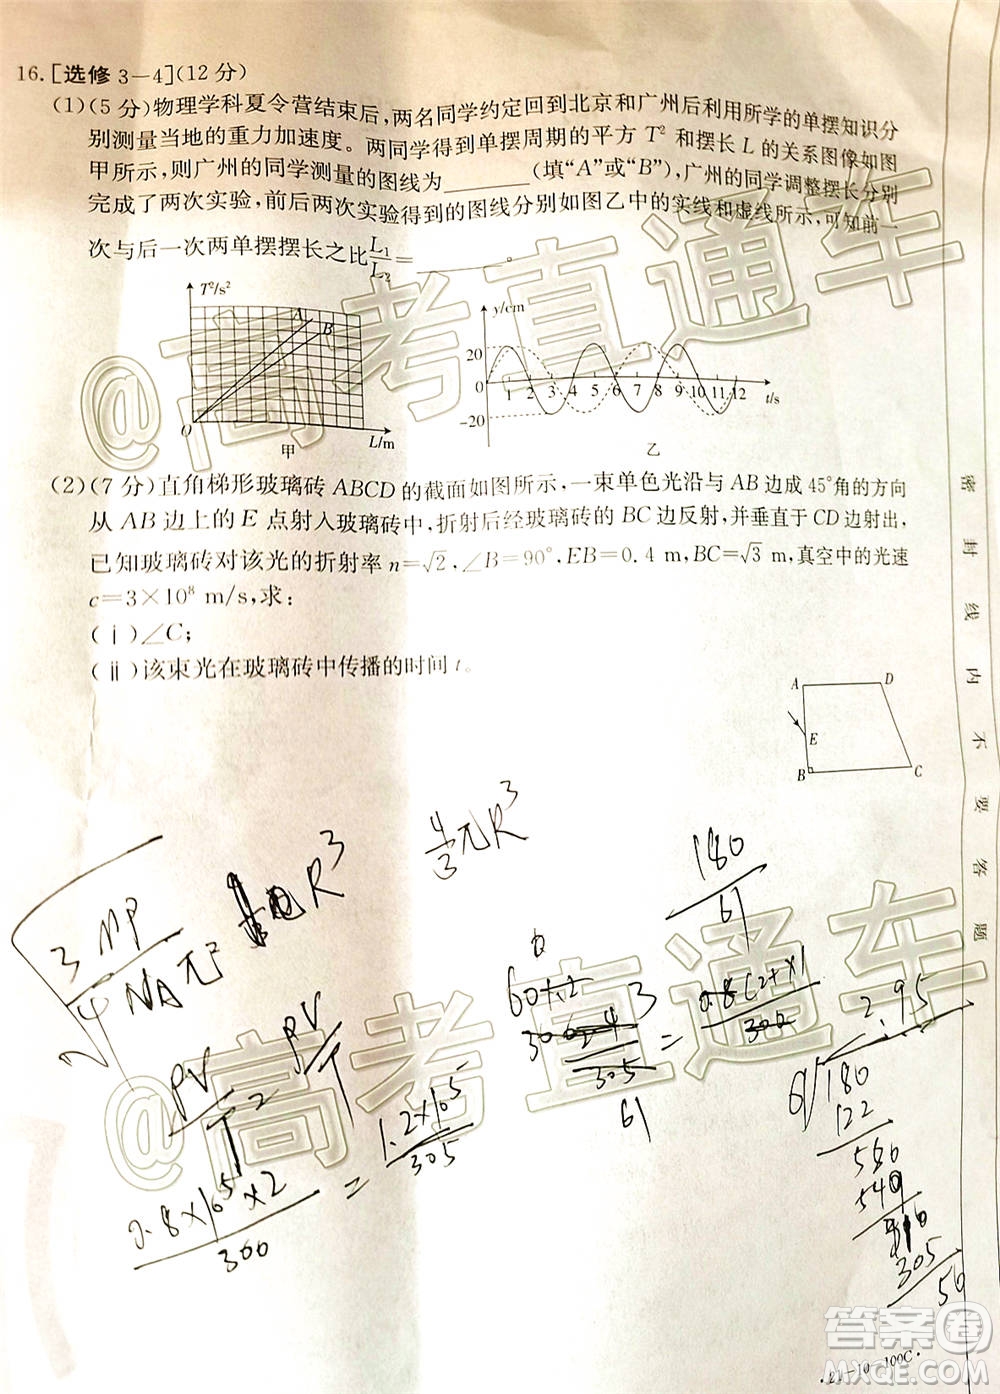 16.[选修3－4](12分)
(1)(5分)物理学科夏令营结束后,两名同学约定回到北京和广州后利用所学的单摆知识分
别测量当地的重力加速度。两同学得到单摆周期的平方T²和摆长L的关系图像如图
甲所示,则广州的同学测量的图线为________(填“A”或“B”),广州的同学调整摆长分别
完成了两次实验,前后两次实验得到的图线分别如图乙中的实线和虚线所示,可知前一
次与后一次两单摆摆长之比L₁/L₂=________。
T²/s²
A
B
O
L/m
甲
y/cm
20
0
-20
1 2 3 4 5 6 7 8 9 10 11 12
t/s
乙
(2)(7分)直角梯形玻璃砖ABCD的截面如图所示,一束单色光沿与AB边成45°角的方向
从AB边上的E点射入玻璃砖中,折射后经玻璃砖的BC边反射,并垂直于CD边射出,
已知玻璃砖对该光的折射率n=√2,∠B=90°,EB=0.4 m,BC=√3 m,真空中的光速
c=3×10⁸ m/s,求:
(ⅰ)∠C;
(ⅱ)该束光在玻璃砖中传播的时间t。
A
D
E
B
C
密封线内不要答题
4/3πR³
180/61
PV/T=PV/T
0.8×10⁵×2/300=1.2×10⁵/305
61
2.95
180
122
305
56
@高考直通车
@高考直通车
答案圈
MXQE.COM